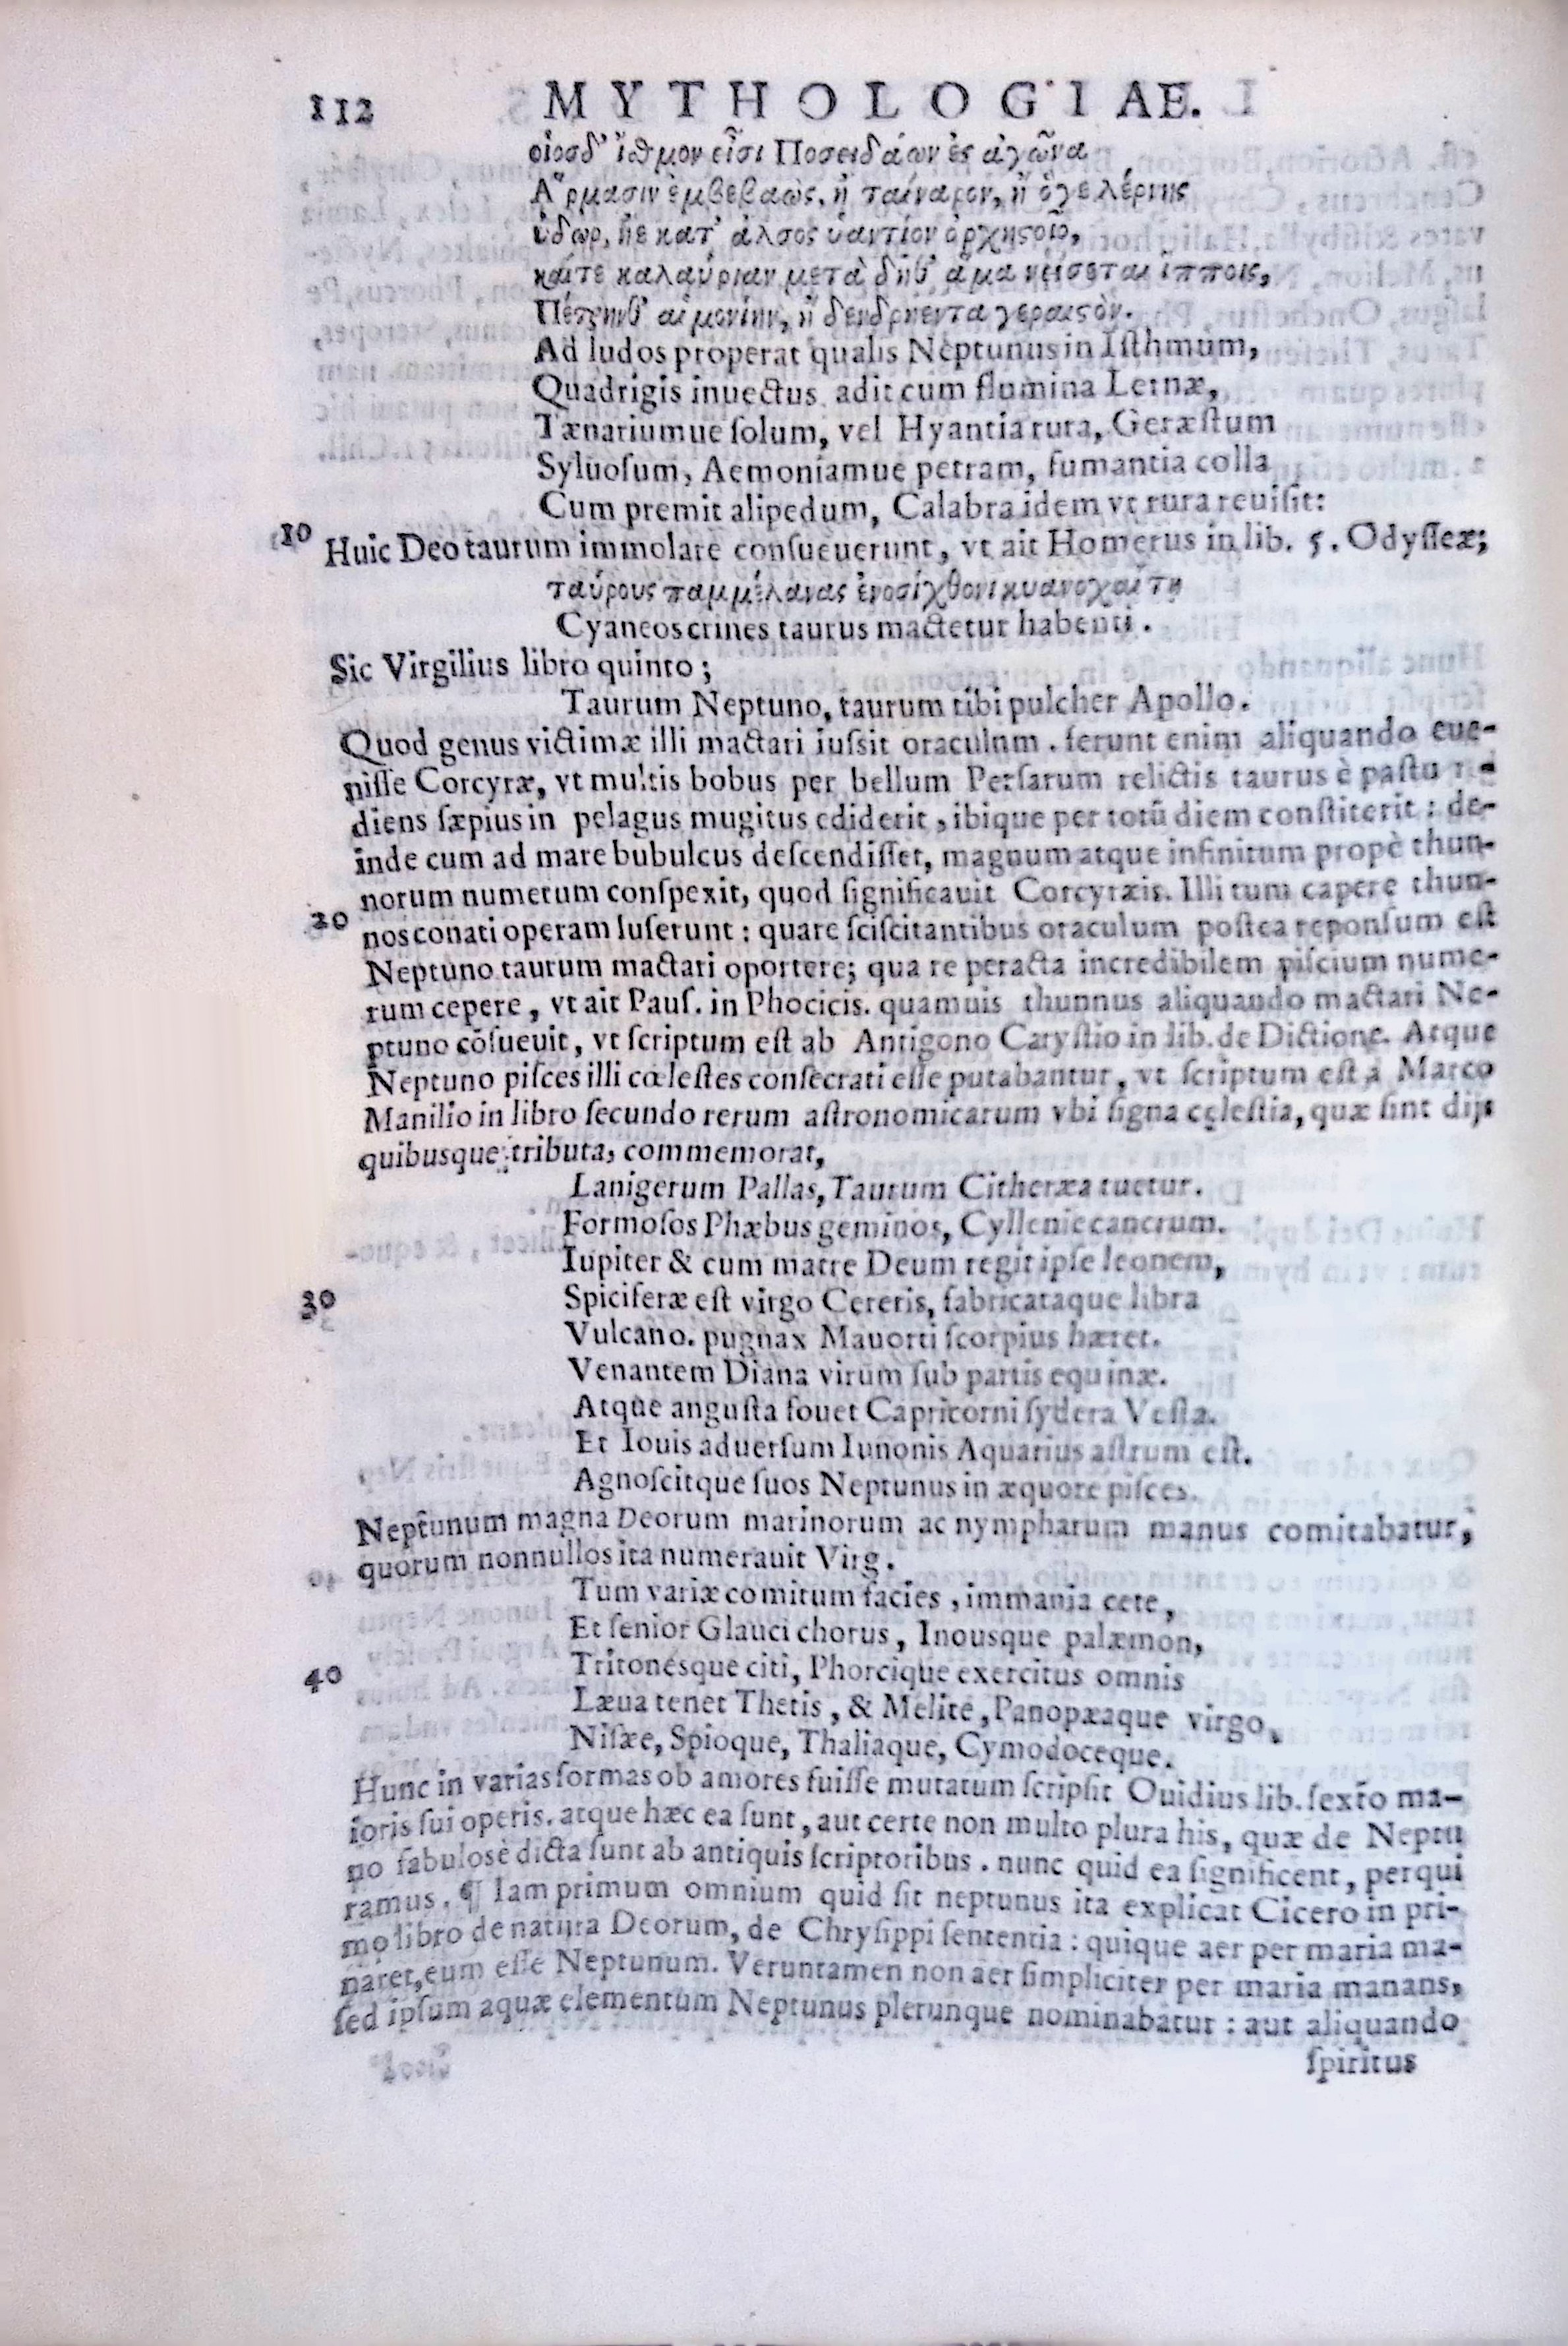 112 MYTHOLOGIAE.
οἷοσδ' ἴϑμον εἶσι Ποσειδάων ἐς ἀγῶνα
Α῞ρμασιν ἐμβεβαὼς, ἢ ταίναρον, ἢ ὅγε λέρνης
ὑδωρ, ἠὲ κατ' ἀλσος ὑαντίον ὀρχηςοῖο,
καίτε καλαύριαν μετὰ δὴθ' ἅμα νείσεται ἵπποις,
Πέτρηνθ' αἱμονίην, ἢ δενδρήεντα γεραιςὸν.
Ad ludos properat qualis Neptunus in Iſthmum,
Quadrigis inuectus adit cum flumina Lernæ,
Tænariumue ſolum, vel Hyantia rura, Geræſtum
Syluoſum, Aemoniamue petram, fumantia colla
Cum premit alipedum, Calabra idem vt rura reuiſit:
10 Huic Deo taurum immolare conſueuerunt, vt ait Homerus in lib. 5. Odyſſeæ;
ταύρους παμμέλανας ἐνοσίχθονι κυανοχαίτη
Cyaneos crines taurus mactetur habenti.
Sic Virgilius libro quinto;
Taurum Neptuno, taurum tibi pulcher Apollo.
Quod genus victimæ illi mactari iuſsit oraculnm. ferunt enim aliquando eue-
niſſe Corcyræ, vt multis bobus per bellum Perſarum relictis taurus è paſtu re
diens ſæpius in pelagus mugitus ediderit, ibique per totũ diem conſtiterit: de-
inde cum ad mare bubulcus deſcendiſſet, magnum atque infinitum propè thun-
norum numerum conſpexit, quod ſignificauit Corcyræis. Illi tum capere thun-
20 nos conati operam luſerunt: quare ſciſcitantibus oraculum poſtea reponſum eſt
Neptuno taurum mactari oportere; qua re peracta incredibilem piſcium nume-
rum cepere, vt ait Pauſ. in Phocicis. quamuis thunnus aliquando mactari Ne-
ptuno cõſueuit, vt ſcriptum eſt ab Antigono Caryſtio in lib. de Dictione. Atque
Neptuno piſces illi cœleſtes conſecrati eſſe putabantur, vt ſcriptum eſt à Marco
Manilio in libro ſecundo rerum aſtronomicarum vbi ſigna cęleſtia, quæ ſint dijs
quibusque tributa, commemorat,
Lanigerum Pallas, Taurum Citheræa tuetur.
Formoſos Phæbus geminos, Cyllenie cancrum.
Iupiter & cum matre Deum regit ipſe leonem,
30 Spiciferæ eſt virgo Cereris, fabricataque libra
Vulcano. pugnax Mauorti ſcorpius hæret.
Venantem Diana virum ſub partis equinæ.
Atque anguſta fouet Capricorni ſydera Veſta.
Et Iouis aduerſum Iunonis Aquarius aſtrum eſt.
Agnoſcitque ſuos Neptunus in æquore piſces.
Neptunum magna Deorum marinorum ac nympharum manus comitabatur,
quorum nonnullos ita numerauit Virg.
Tum variæ comitum facies, immania cete,
Et ſenior Glauci chorus, Inousque palæmon,
40 Tritonesque citi, Phorcique exercitus omnis
Læua tenet Thetis, & Melite, Panopæaque virgo,
Niſæe, Spioque, Thaliaque, Cymodoceque.
Hunc in varias formas ob amores fuiſſe mutatum ſcripſit Ouidius lib. ſexto ma-
ioris ſui operis. atque hæc ea ſunt, aut certe non multo plura his, quæ de Neptu
no fabulosè dicta ſunt ab antiquis ſcriptoribus. nunc quid ea ſignificent, perqui
ramus. ¶ Iam primum omnium quid ſit neptunus ita explicat Cicero in pri-
mo libro de natura Deorum, de Chryſippi ſententia: quique aer per maria ma-
naret, eum eſſe Neptunum. Veruntamen non aer ſimpliciter per maria manans,
ſed ipſum aquæ elementum Neptunus plerunque nominabatur: aut aliquando
ſpiritus